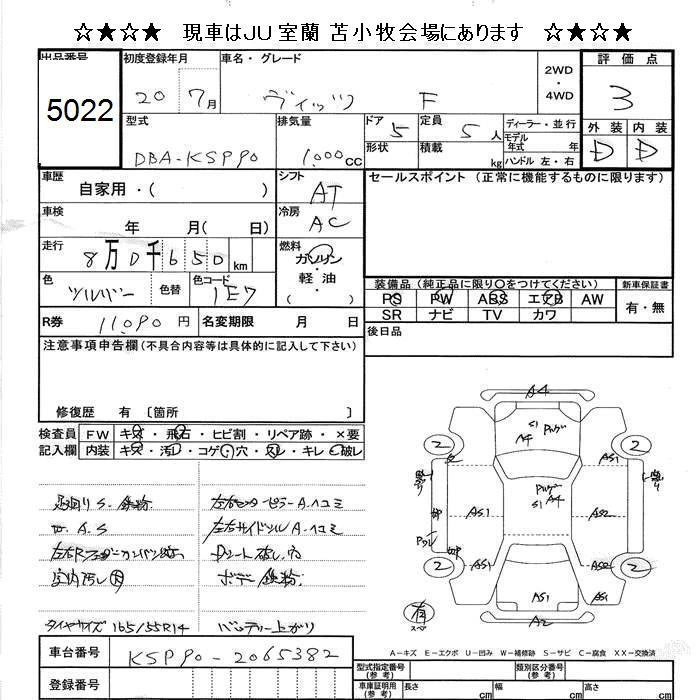 ☆★☆★ 現車はJU室蘭 苫小牧会場にあります ☆★☆★
出品番号
5022
初度登録年月
20 7月
車名・グレード
ヴィッツ F
2WD
・
4WD
評価点
3
外装 内装
D D
型式
DBA-KSP90
排気量
1,000cc
ドア 5
定員 5人
形状
積載 kg
ディーラー・並行
モデル年式 年
ハンドル 左・右
車歴
自家用・( )
シフト
AT
セールスポイント(正常に機能するものに限ります)
車検
年 月( 日)
冷房
AC
走行
8万0千650km
燃料
ガソリン
・
軽・油
( )
色
シルバー
色替
色コード
1E7
装備品(純正品に限り○をつけてください)
新車保証書
PS PW ABS エアB AW
有・無
SR ナビ TV カワ
R券 11,090円
名変期限 月 日
後日品
注意事項申告欄(不具合内容等は具体的に記入して下さい)
修復歴 有〔箇所 〕
検査員記入欄
FW キズ・飛石・ヒビ割・リペア跡・×要
内装 キズ・汚レ・コゲ・穴・スレ・キレ・破レ
足廻りS・鉄粉
A.S
室内汚レ大
タイヤサイズ 165/55R14
左右センターピラーA.ヘコミ
左右サイドシルA.ヘコミ
Dシート破レ.穴
ボデー鉄粉
バッテリー上がり
A4
S1
A4
S1
A4
2 2
2 2
AS1
AS1 AS2
AS1 AS2
AS1 AS1
A2
有
スペア
A-キズ E-エクボ U-凹み W-補修跡 S-サビ C-腐食 XX-交換済
車台番号
KSP90-2065382
登録番号
型式指定番号(参考)
類別区分番号(参考)
車庫証明用(参考)
長さ cm
幅 cm
高さ cm